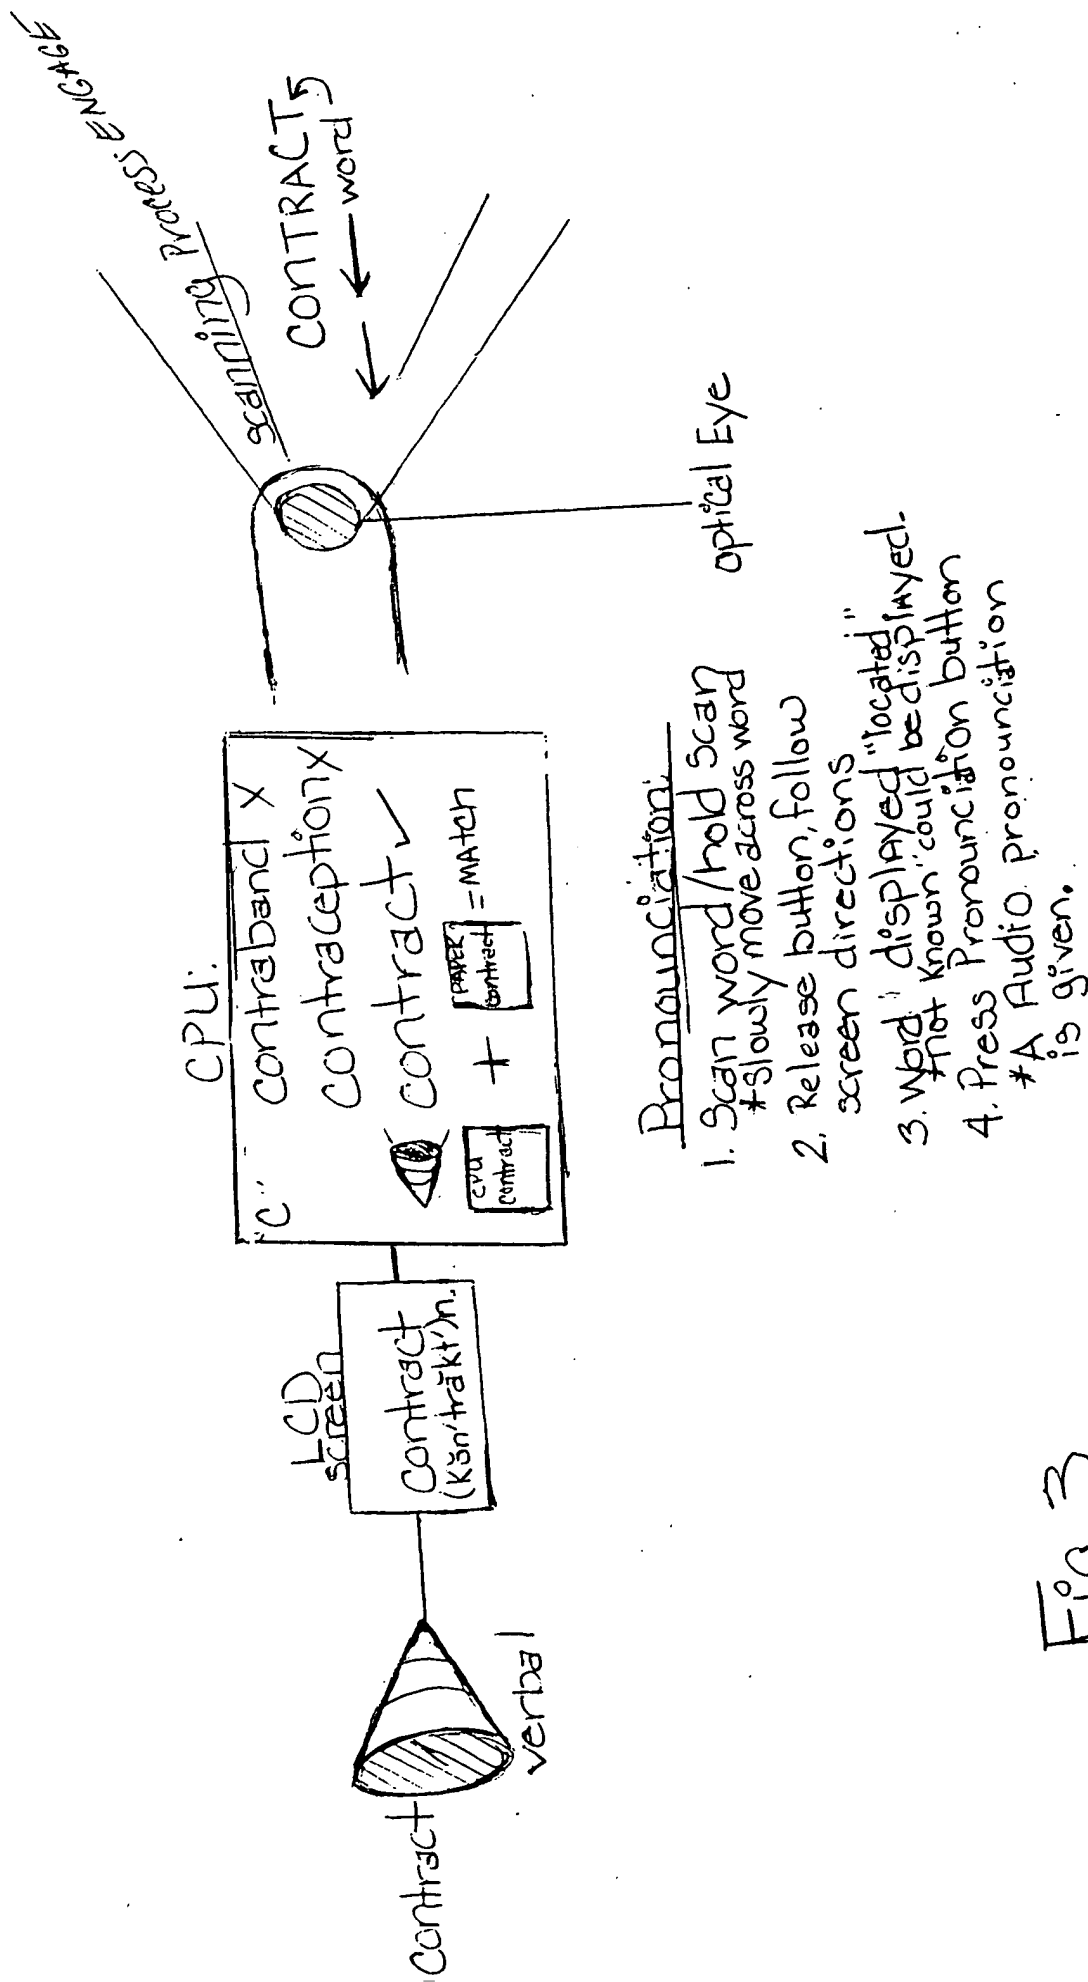 scanning Process: ENGAGE
CONTRACT
word
optical Eye
CPU:
"C" contraband X
contraception X
contract ✓
CPU contract + PAPER contract = MATCH
LCD
screen
contract
(kŏn'trăkt')n.
verbal
contract
Pronounciation:
1. Scan word/hold scan
*Slowly move across word
2. Release button, follow
screen directions
3. Word displayed "located"
*"not known" could be displayed.
4. Press Pronounciation button
*A Audio pronounciation
is given.
Fig 3